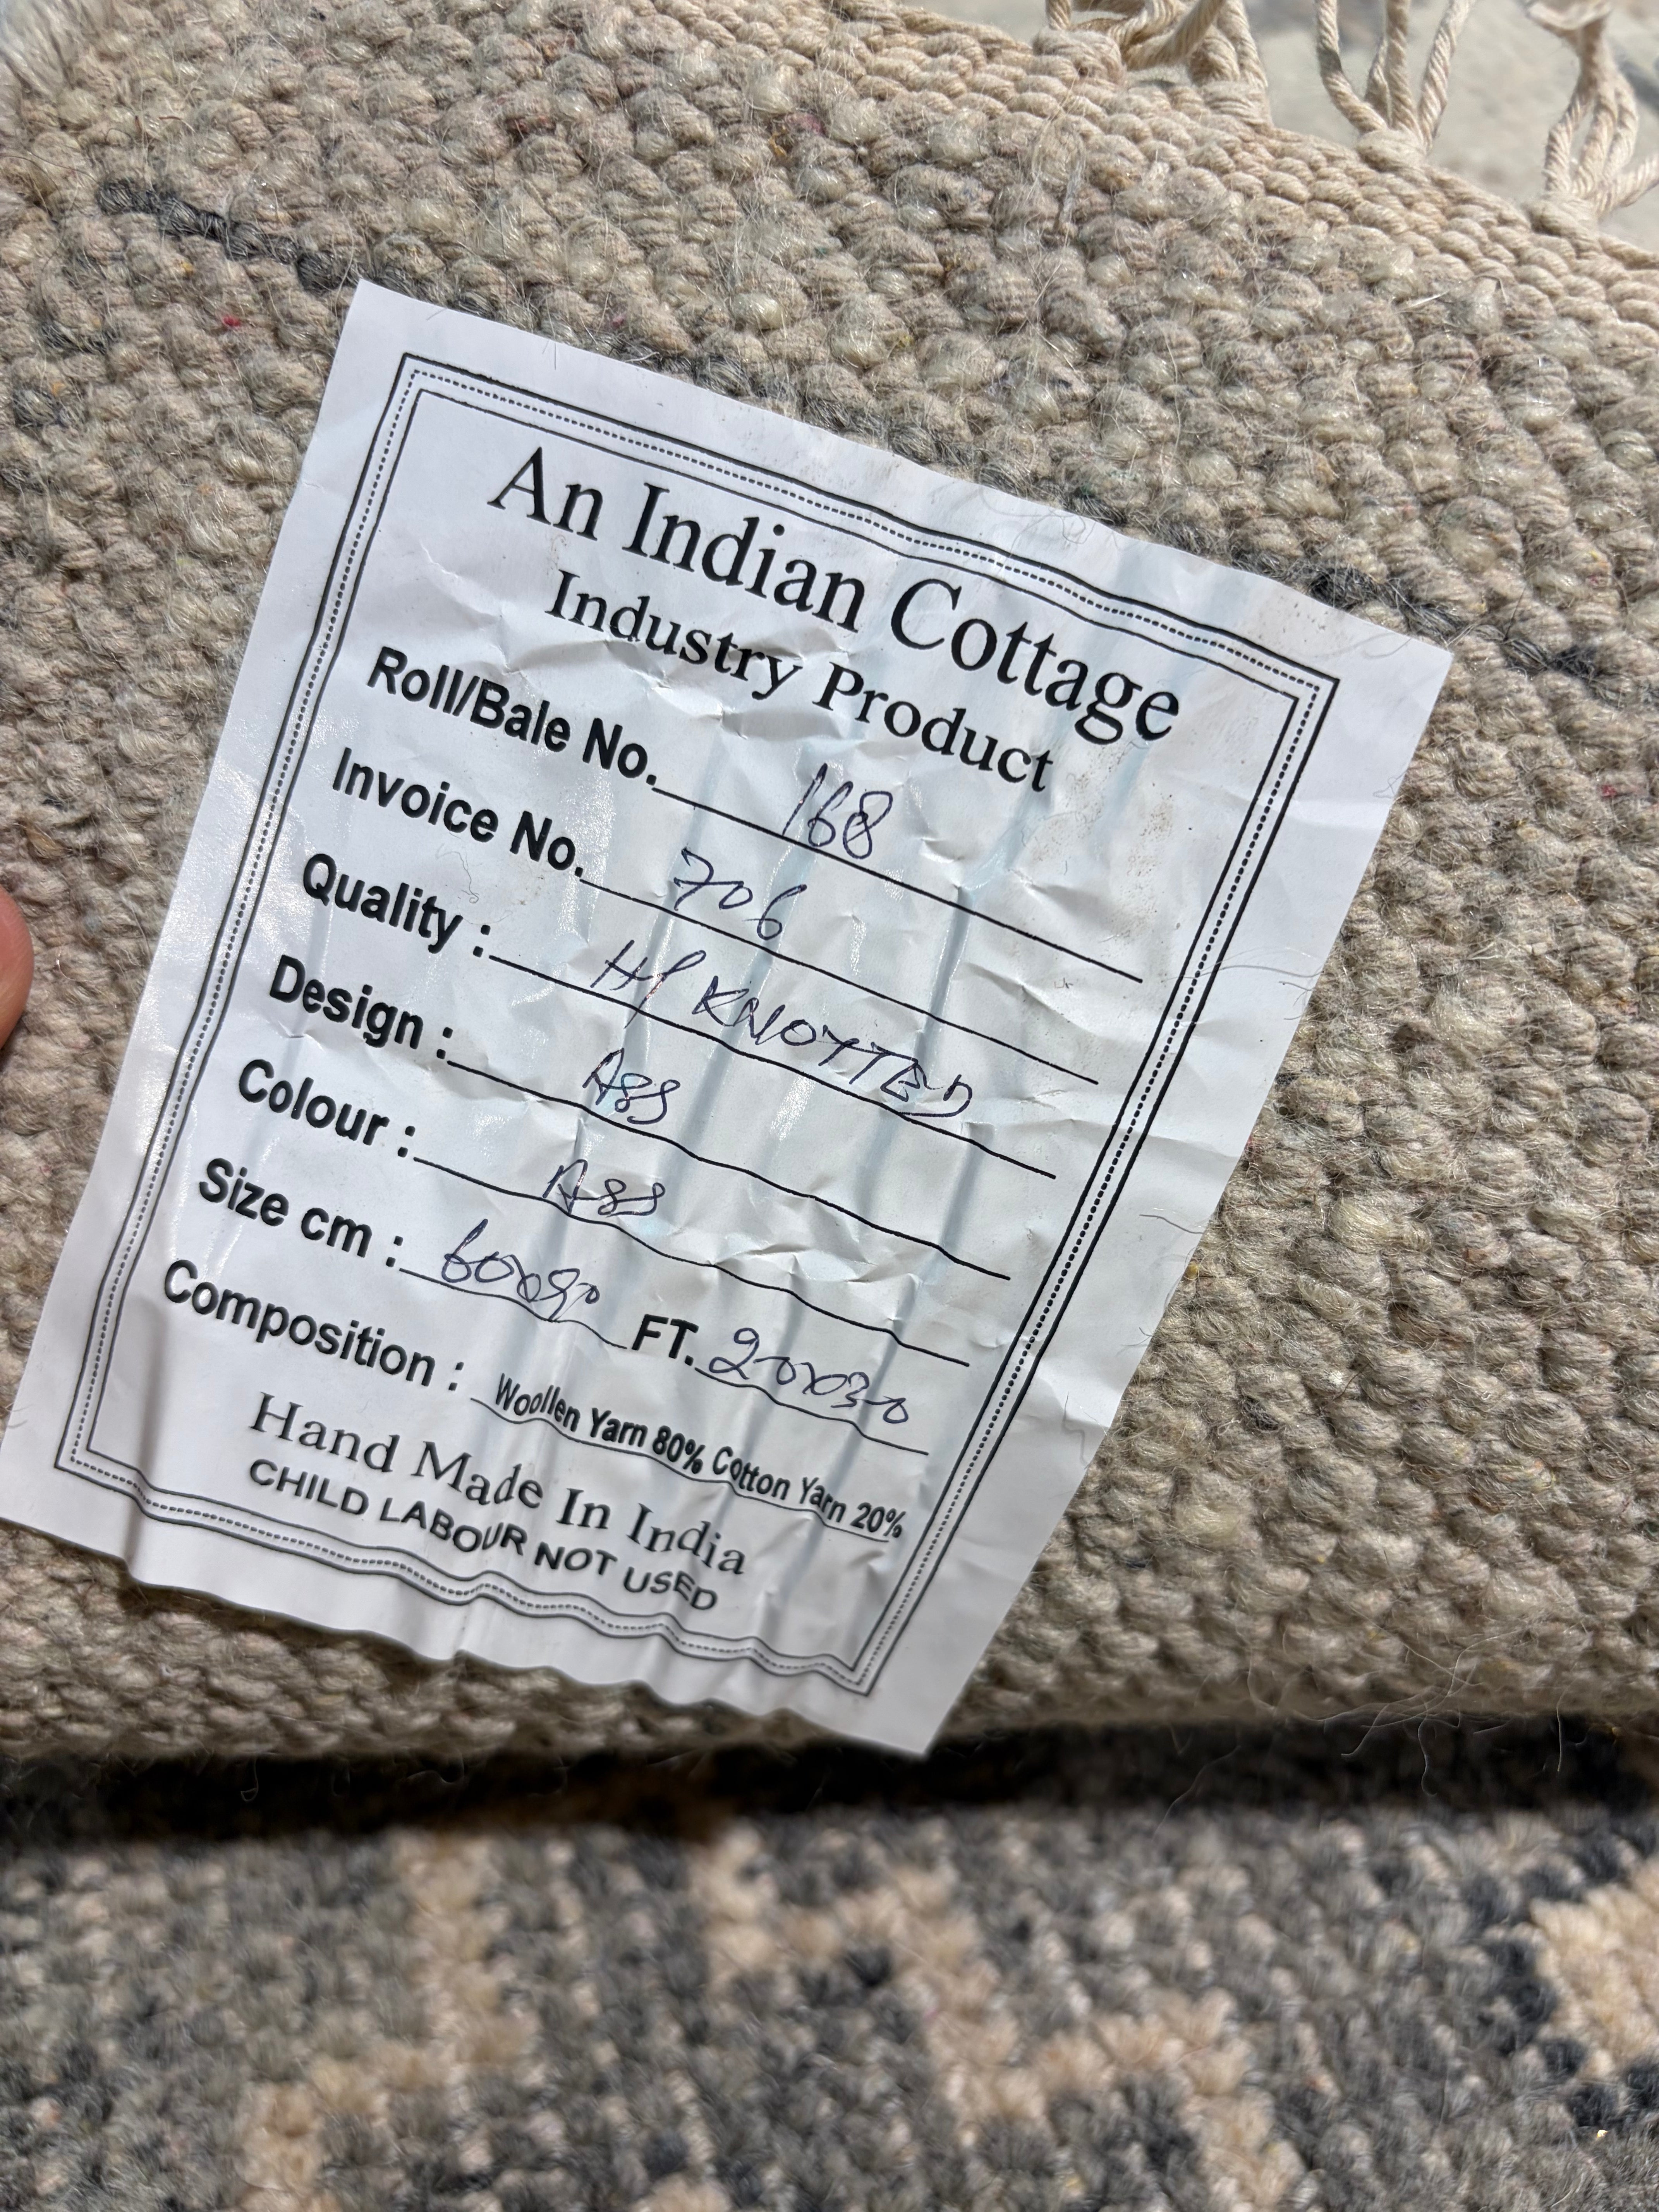 An Indian Cottage
Industry Product
Roll/Bale No. 168
Invoice No. 706
Quality : H/ KNOTTED
Design : ASS
Colour : ASS
Size cm : 60x90 FT. 20x30
Composition : Woollen Yarn 80% Cotton Yarn 20%
Hand Made In India
CHILD LABOUR NOT USED